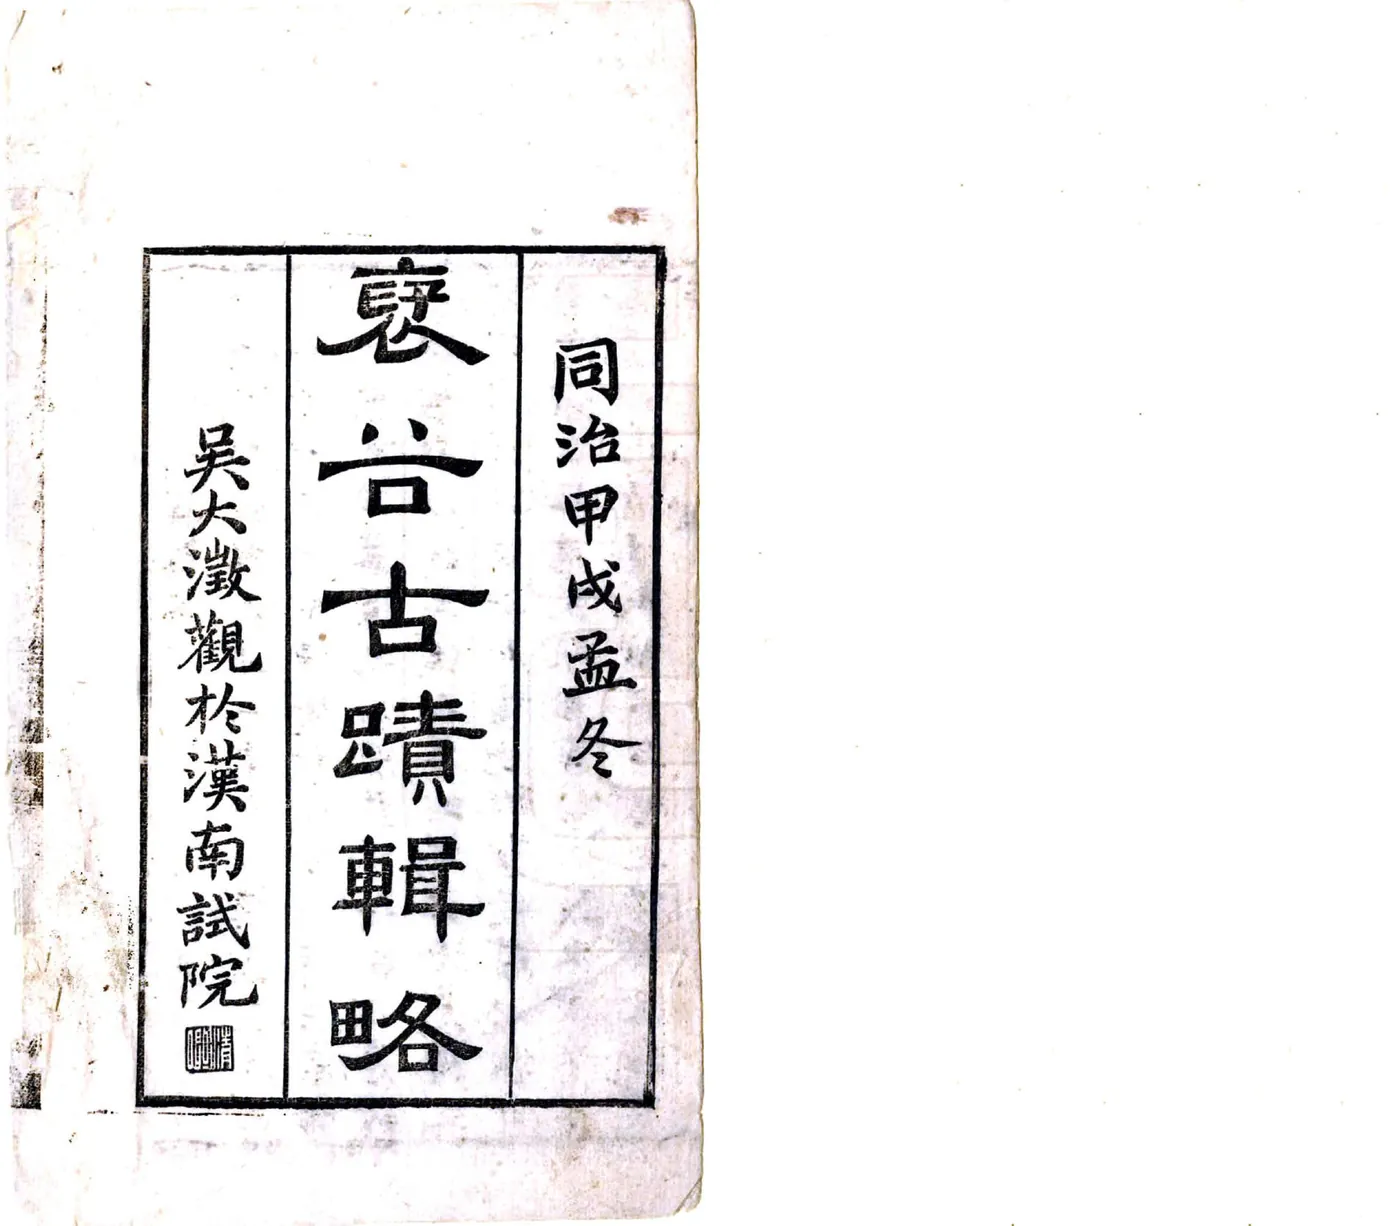 同治甲戌孟冬
褎谷古蹟輯略
吴大澂觀於漢南試院